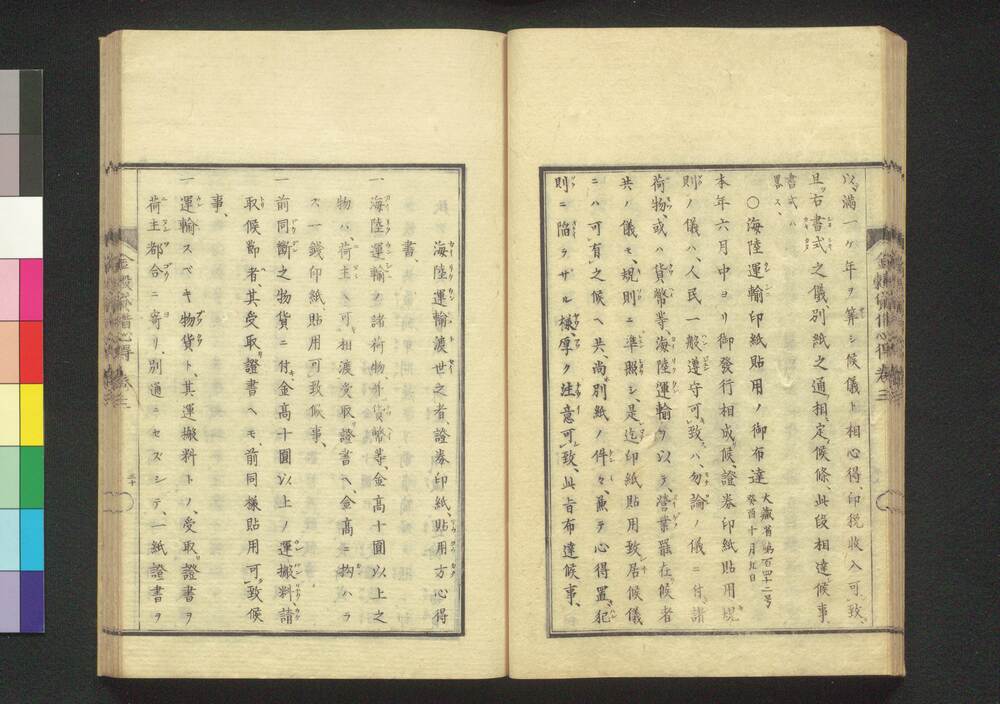 以、滿一ケ年ヲ算シ候儀ト相心得、印税收入可致、
且右書式之儀別紙之通相定候條、此段相達候事、
書式ハ畧ス、
〇海陸運輸印紙貼用ノ御布達 大藏省第百四十二号 癸酉十月九日
本年六月中ヨリ御發行相成候、證券印紙貼用規
則ノ儀ハ、人民一般遵守可致ハ、勿論ノ儀ニ付、諸
荷物、或ハ貨幣等、海陸運輸ヲ以テ、營業罷在候者
共ノ儀モ、規則ニ準照シ、是迄印紙貼用致居候儀
ニハ可有之候ヘ共、尚別紙ノ件々、兼テ心得置、犯
則ニ陷ラザル様、厚ク注意可致、此旨布達候事、
金穀貸借心得 卷三
海陸運輸渡世之者、證券印紙貼用方心得
書、
一海陸運輸ノ諸荷物并貨幣等、金高十圓以上之
物ハ、荷主ヘ可相渡受取證書ヘ、金高ニ拘ハラ
ス一錢印紙、貼用可致候事、
一前同斷之物貨ニ付、金高十圓以上ノ運搬料請
取候節者、其受取證書ヘモ、前同様貼用可致候
事、
一運輸スベキ物貨ト、其運搬料トノ、受取證書ヲ
荷主都合ニ寄リ、別通ニセズシテ、一紙證書ヲ
金穀貸借心得 卷三